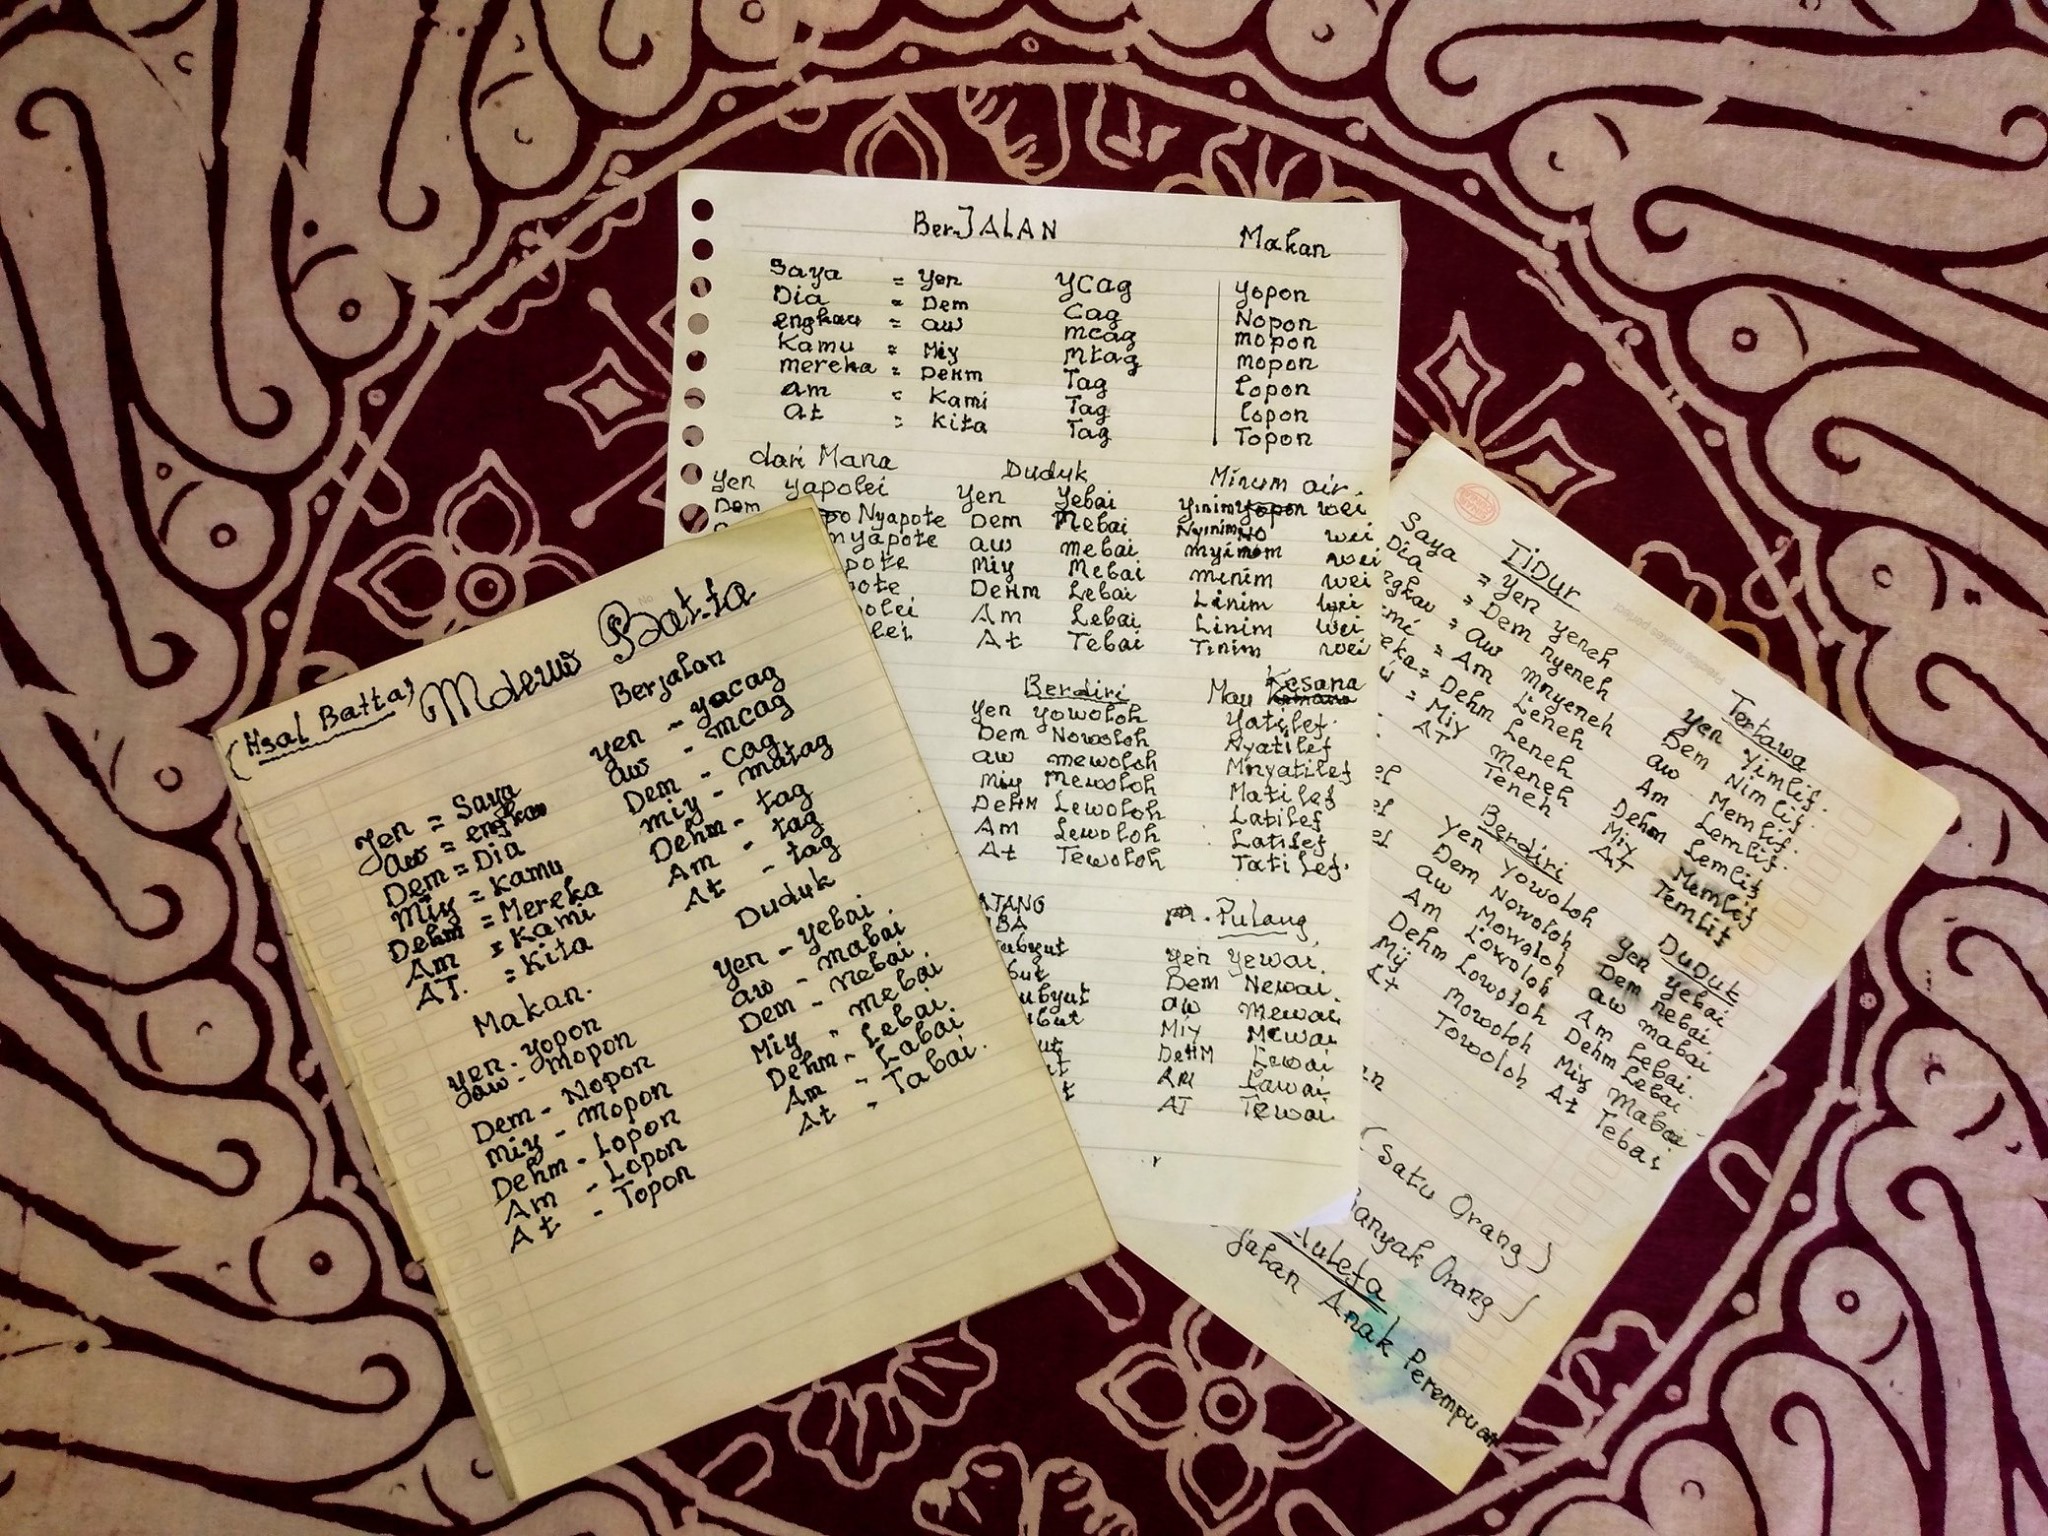 (Asal Batta) Mdeuw Batta
Yen = Saya
aw = engkau
Dem = Dia
Miy = Kamu
Dehm = Mereka
Am = Kami
AT. = Kita
Makan.
yen - yopon
aw - Mopon
Dem - Nopon
Miy - Mopon
Dehm - Lopon
Am - Lopon
At - Topon
Berjalan
yen - yacag
aw - mcag
Dem - Cag
Miy - matag
Dehm - tag
Am - tag
At - tag
Duduk
yen - yebai.
aw - mabai.
Dem - Nebai.
Miy - mebai
Dehm - Lebai
Am - Labai
At - Tabai.
BerJALAN Makan
Saya = Yen YCag yopon
Dia = Dem Cag Nopon
engkau = aw mcag mopon
Kamu = Miy mtag mopon
mereka = DeHm Tag Lopon
am = Kami Tag Lopon
at = Kita Tag Topon
dari Mana Duduk Minum air
Yen yapolei Yen Yebai yinim yopon wei
Dem Nyapote Dem Nebai Nyinim wei
myapote aw mebai wei
pote Miy Mebai minim wei
pote DeHm Lebai Linim wei
olei Am Lebai Linim wei
lei At Tebai Tinim wei
Berdiri Mau Kesana
Yen yowoloh Yatilef.
Dem Nowoloh Nyatilef
aw mewoloh Mnyatilef
Miy Mewoloh Matilef
DeHm Lewoloh Latilef
Am Lewoloh Latilef
At Tewoloh Tatilef.
ATANG Pulang
IBA
ubyut Yen yewai.
but Dem Newai.
ubyut aw mewai.
but Miy Mewai
ut DeHM Lewai
t AM Lawai
t AT Tewai
Tidur
Saya = Yen yeneh
Dia = Dem nyeneh
ngkau = aw mnyeneh
mi = Am Leneh
eka = Dehm Leneh
= Miy meneh
AT Teneh
Tertawa
Yen Yimlif.
Dem Nimlif.
aw Memlif.
Am Lemlif.
Dehm Lemlif
Miy Memlif
AT Temlif
Berdiri
Yen Yowoloh
Dem Nowoloh
aw Mowoloh
Am Lowoloh
Dehm Lowoloh
Miy Mowoloh
At Towoloh
Duduk
Yen Yebai
Dem nebai
aw mabai
Am Lebai.
Dehm Lebai
Miy Mabai
At Tebai
an
(Satu Orang)
anyak Orang)
uleta
jalan Anak Perempuan